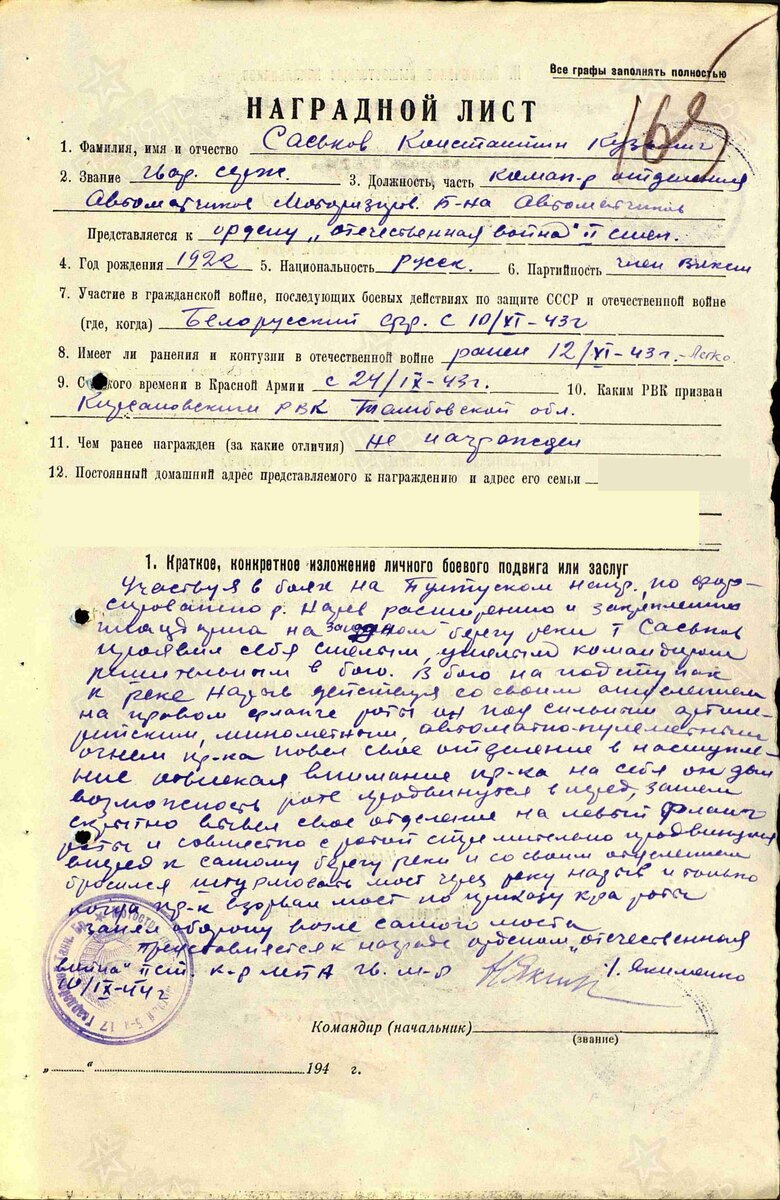 Все графы заполнять полностью
НАГРАДНОЙ ЛИСТ
169
1. Фамилия, имя и отчество Саськов Константин Кузьмич
2. Звание гвар. серж. 3. Должность, часть команд-р отделения
Автоматчиков Моторизиров. Б-на Автоматчиков
Представляется к ордену „отечественная война" II степ.
4. Год рождения 1922 5. Национальность русск. 6. Партийность член ВЛКСМ
7. Участие в гражданской войне, последующих боевых действиях по защите СССР и отечественной войне
(где, когда) Белорусский фр. с 10/XI-43г
8. Имеет ли ранения и контузии в отечественной войне ранен 12/XI-43г.-Легко.
9. С какого времени в Красной Армии с 24/IX-43г. 10. Каким РВК призван
Кирсановским РВК Тамбовской обл.
11. Чем ранее награжден (за какие отличия) не награжден
12. Постоянный домашний адрес представляемого к награждению и адрес его семьи
1. Краткое, конкретное изложение личного боевого подвига или заслуг
Участвуя в боях на Пултуском напр. по фор-
сированию р. Нарев расширению и закреплению
плацдарма на западном берегу реки т Саськов
проявил себя смелым, умелым командиром
решительным в бою. В бою на подступах
к реке Нарыв действуя со своим отделением
на правом фланге роты он под сильным артилле-
рийским, минометным, автоматно-пулеметным
огнем пр-ка повел свое отделение в наступле-
ние отвлекая внимание пр-ка на себя он дал
возможность роте продвинутся в перед, затем
скрытно вывел свое отделение на левый фланг
роты и совместно с ротой стремительно продвинулся
вперед к самому берегу реки и со своим отделением
бросился штурмовать мост через реку Нарыв и только
когда пр-к взорвал мост по приказу к-ра роты
занял оборону возле самого моста
Представляется к награде орденом „отечественная
война" II ст. к-р МБА гв. м-р /. Якименко
10/IX-44г
Командир (начальник)
(звание)
„ " 194 г.